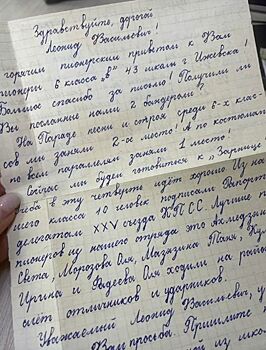 Здравствуйте, дорогой
Леонид Васильевич!
горячим пионерским приветом к Вам
пионеры 6 класса "в" 43 школы г. Ижевска!
Большое спасибо за письмо! Получили ли
Вы посланные нами 2 бандероли?
На Параде песни и строя среди 6-х клас-
сов мы заняли 2-ое место! А по костюмам
по всем параллелям заняли 1 место!
Сейчас мы будем готовиться к "Зарнице
учёба в эту четверть идёт хорошо. Из на-
шего класса 10 человек подписали Рапорт
делегатам XXV съезда КПСС. Лучшие
пионеров из нашего отряда это Ахмедзян
Света, Морозова Оля, Мазагина Таня, Ку
Ирина и Фадеева Оля ходили на райо
слёт отличников и ударников.
Уважаемый Леонид Васильевич, у
Вам просьба. Пришлите
из шко